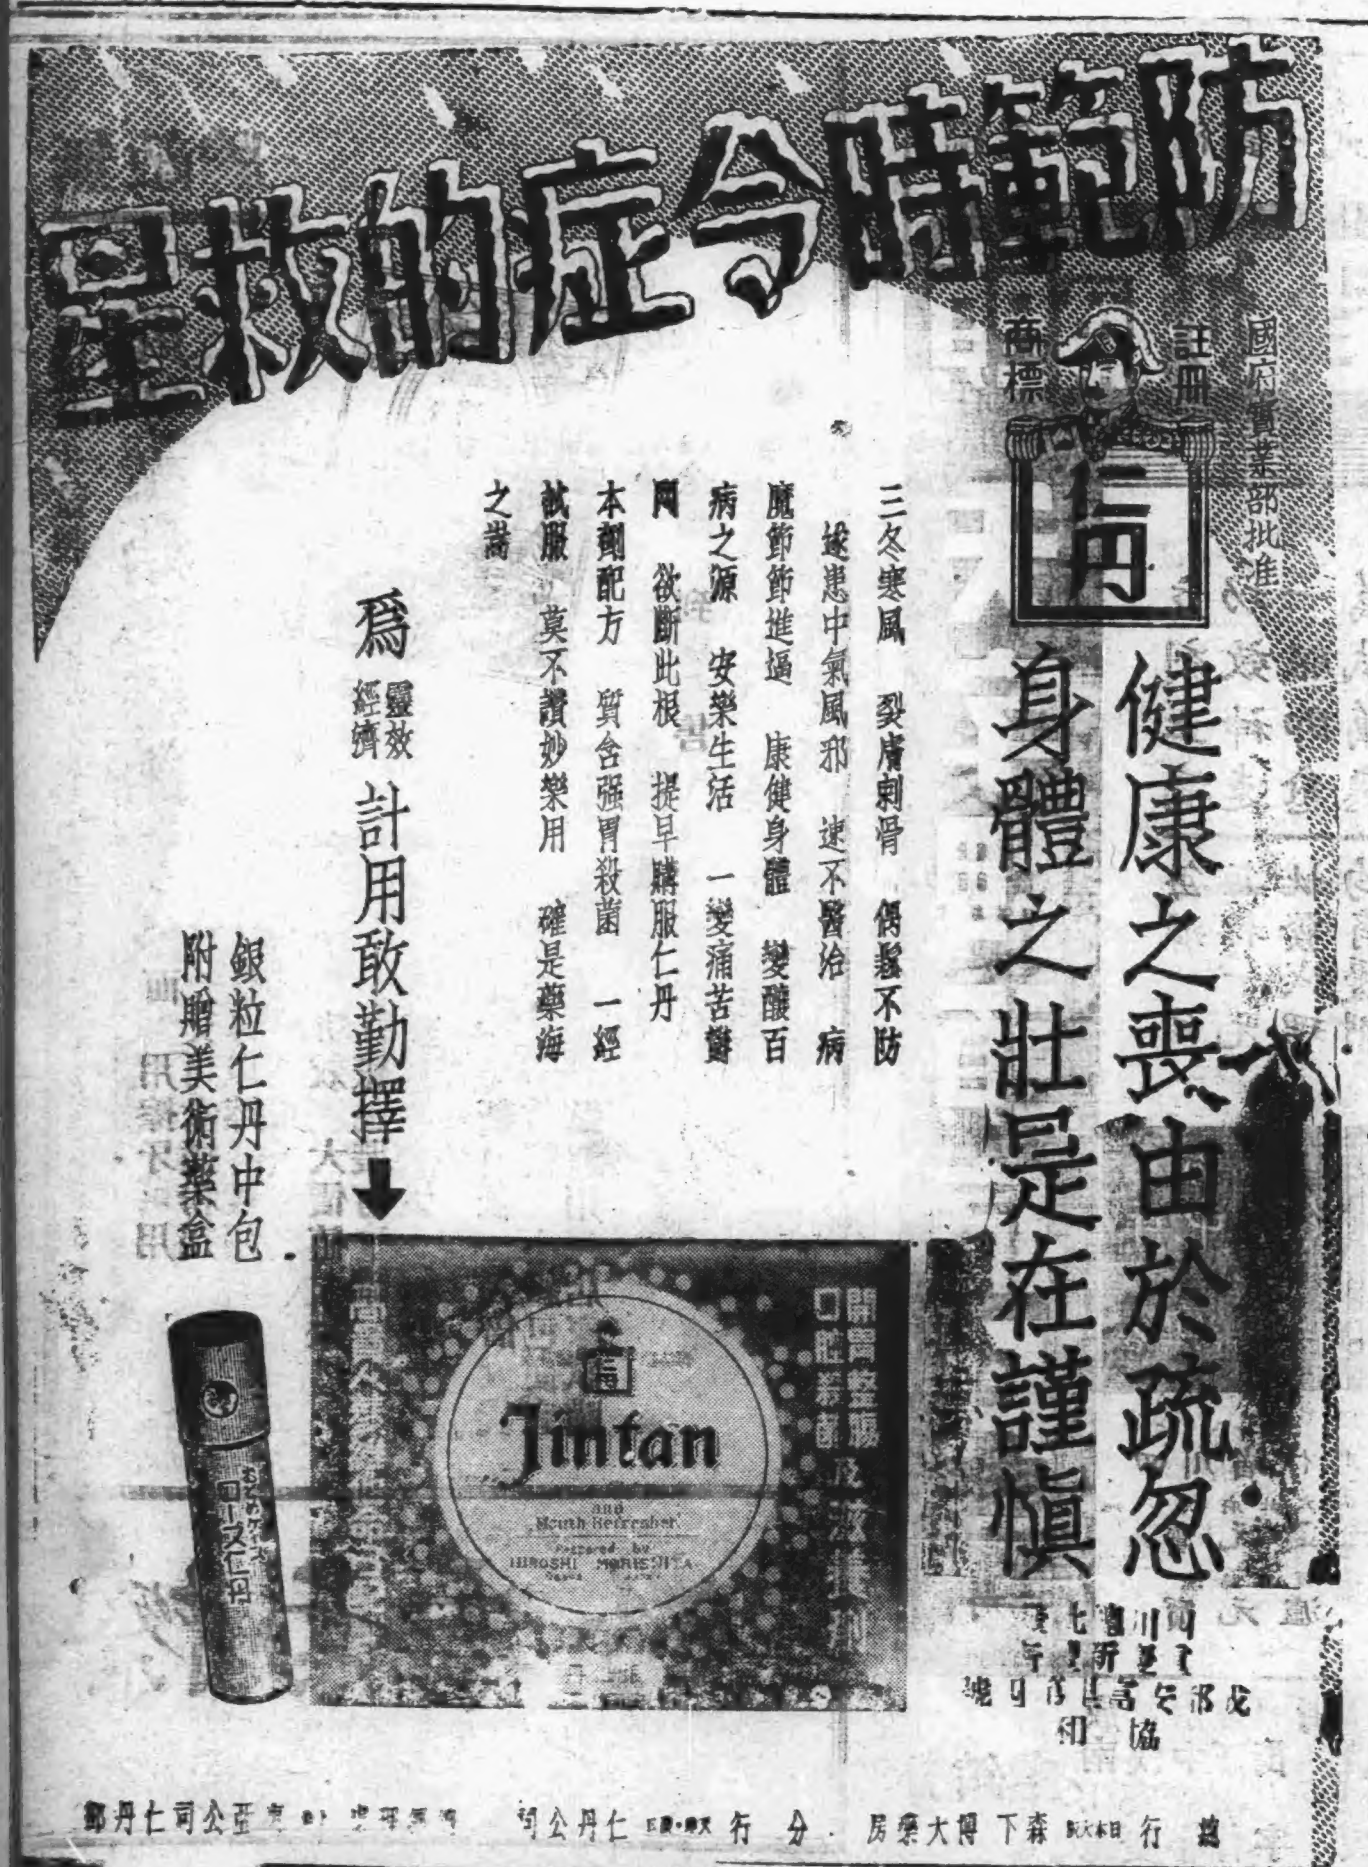 防範時令症的救星
國府實業部批准
註冊
商標
仁丹
健康之喪由於疏忽
身體之壯是在謹慎
三冬寒風 裂膚刺骨 偶爾不防
遂患中氣風邪 速不醫治 病
魔節節進逼 康健身體 變釀百
病之源 安樂生活 一變痛苦鬱
悶 欲斷此根 提早購服仁丹
本劑配方 質含强胃殺菌 一經
試服 莫不讚妙樂用 確是藥海
之
爲
靈效
經濟
計用敢勤擇
銀粒仁丹中包
附贈美術藥盒
開胃整腸
口腔
及滋養劑
仁丹
Jintan
and
Mouth Refresher
Prepared by
HIROSHI MORISHITA
ローズ仁丹
協和
總行 日本大阪 森下博大藥房
分行 仁丹公司
東亞公司仁丹部